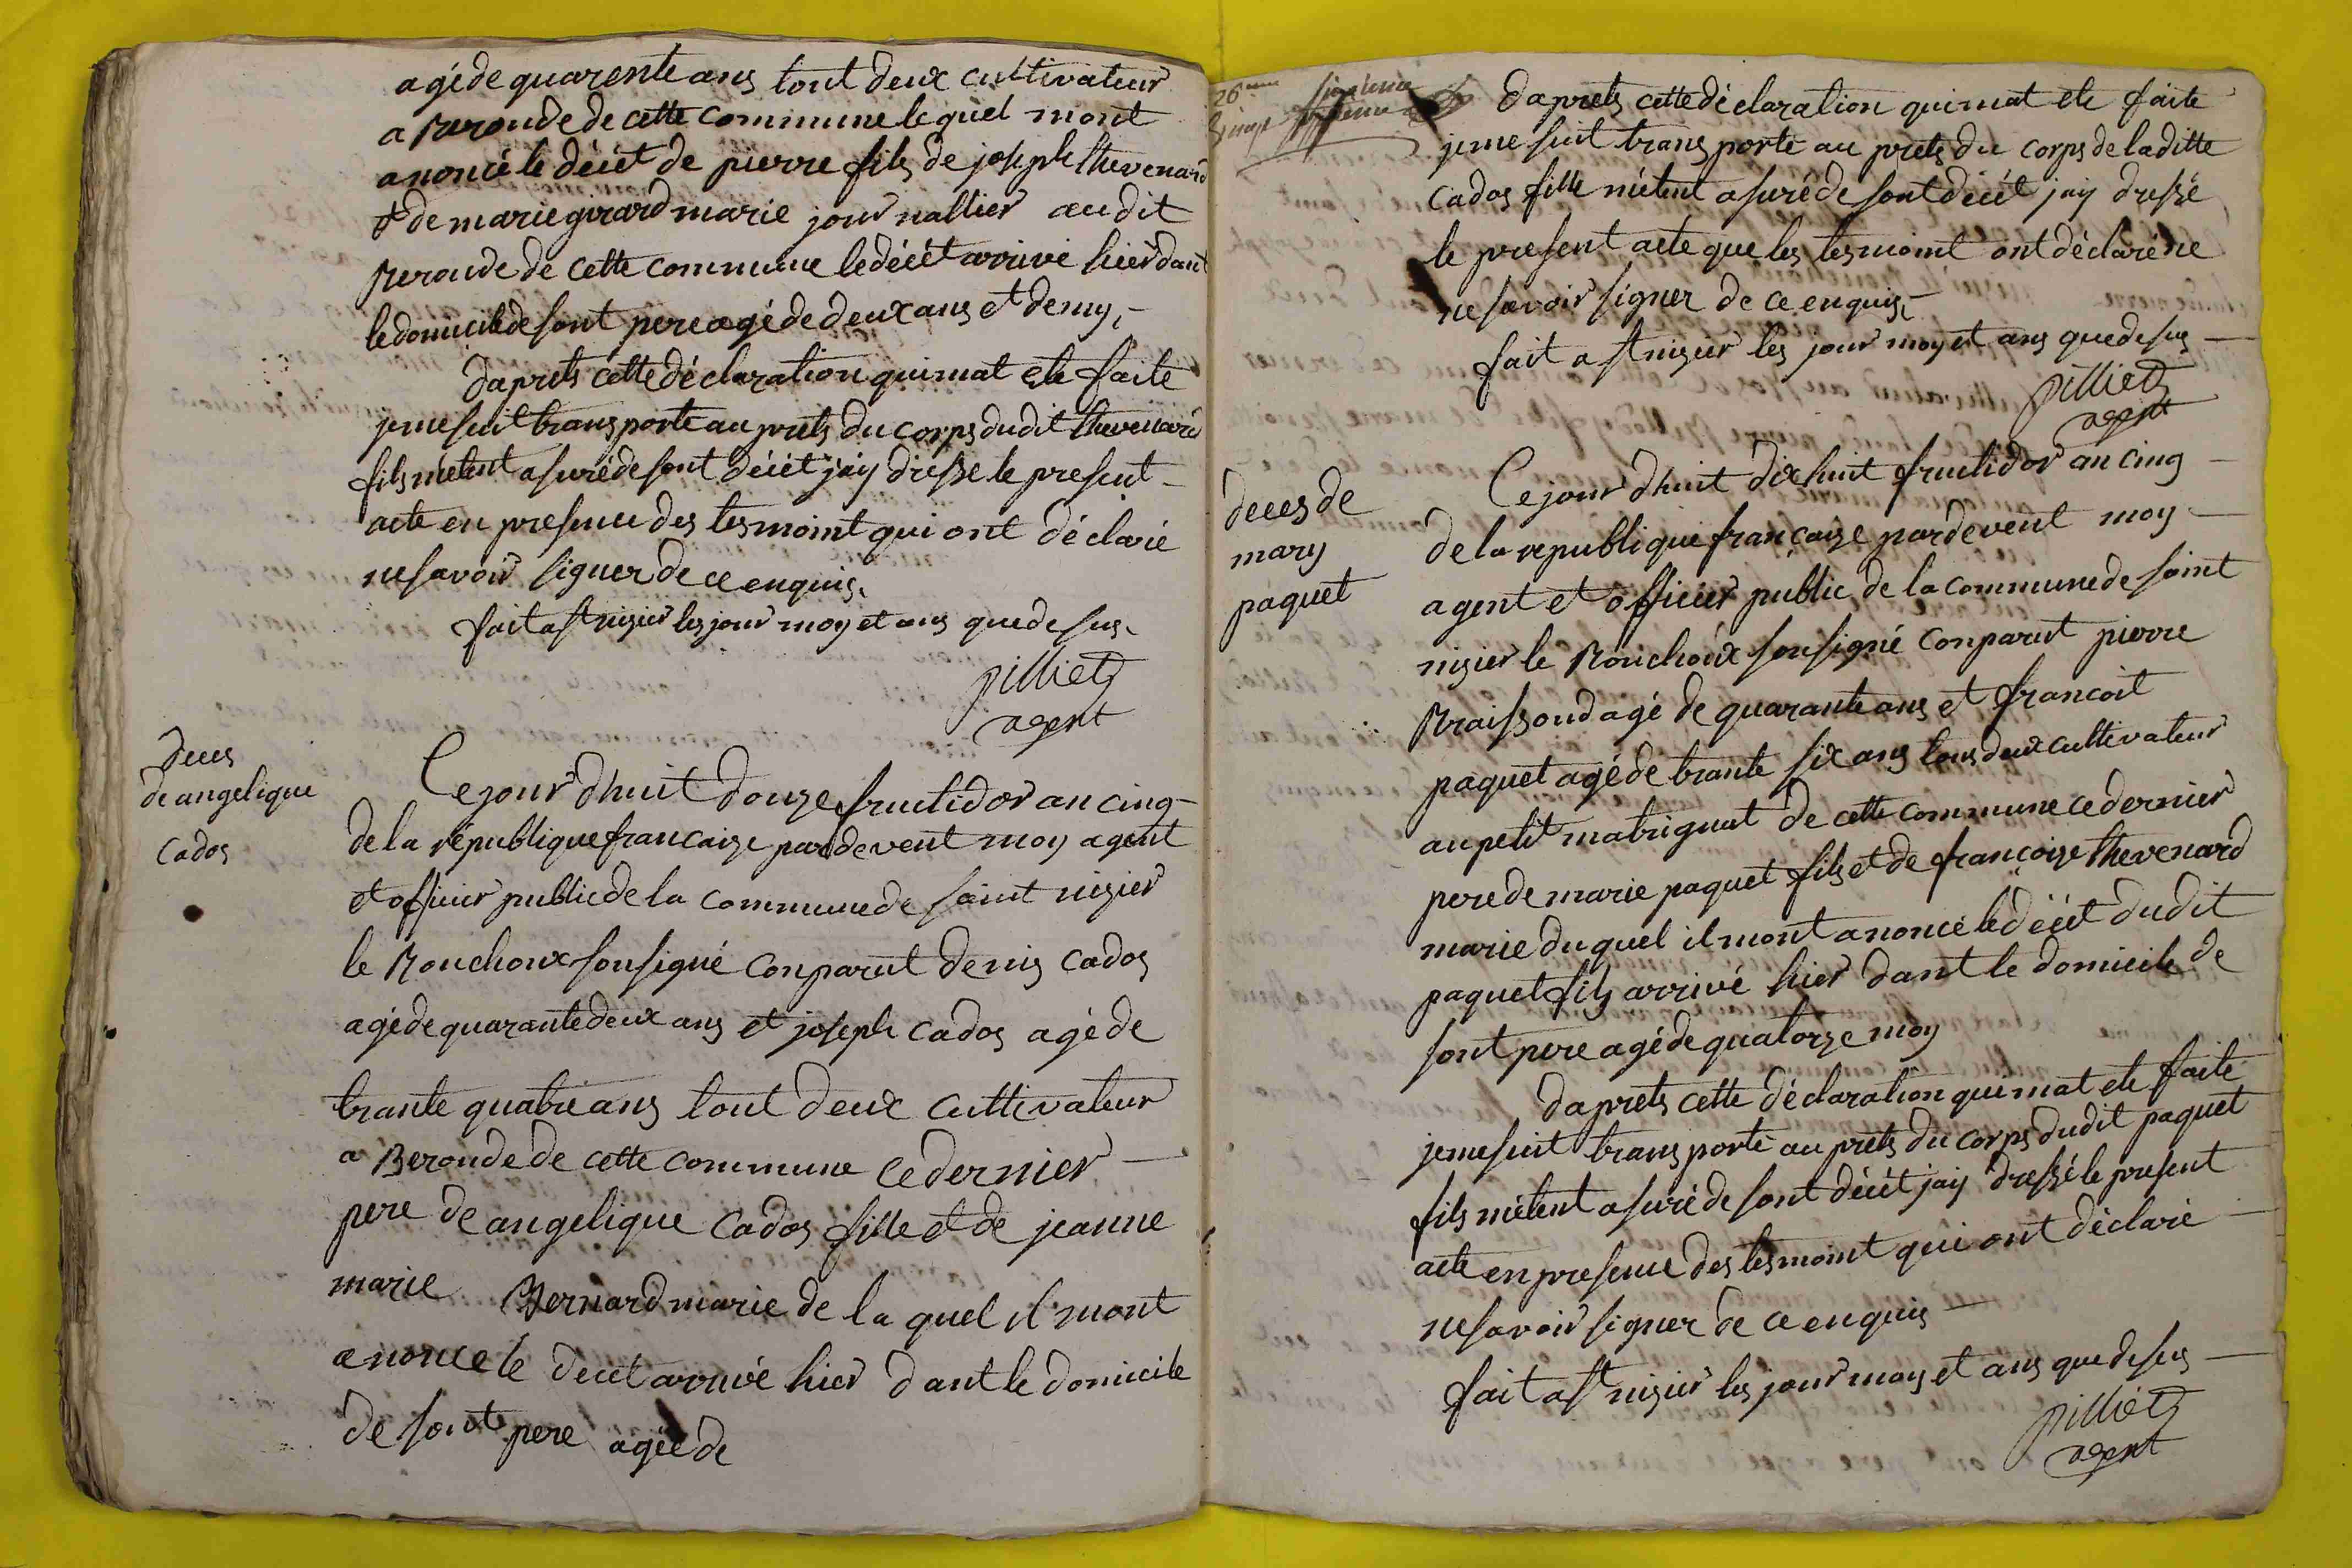 agé de quarente ans tout deux cultivateur
a Beroude de cette commune le quel mont
anoncé le décét de pierre fils de joseph thevenard
& de marie girard marie journallier audit
Beroude de cette commune le décét arrivé hier dant
le domicile de sont pere agé de deux ans et demy,
daprets cette déclaration qui mat ete faite
je me suit transporté au prets du corps dudit thevenard
fils métent asuré de sont décét j'ay dressé le present
acte en presence des tesmoint qui ont déclaré
ne savoir signer de ce enquis.
fait a st nisier les jour moy et ans que desus.
pilliet
agent
deces
de angelique
Cados
Ce jour dhuit douze fructidor an cinq
de la république francaize pardevent moy agent
et officier public de la commune de saint nisier
le Bouchoux sousigné conparut denis Cados
agé de quarante deux ans et joseph Cados agé de
trante quatre ans tout deux cultivateur
a Beroude de cette commune ce dernier
pere de angelique Cados fille et de jeanne
marie Bernard marie de la quel il mont
anoncé le decet arrivé hier dant le domicile
de sont pere agée de
26eme
daprets cette déclaration qui mat ete faite
je me suit transporté au prets du corps de laditte
Cados fille métent asuré de sont décét jay dressé
le present acte que les tesmoint ont déclaré ne
ne savoir signer de ce enquis,
fait a st nisier les jour moy et ans que desus
pilliet
agent
deces de
mary
paquet
Ce jour dhuit dix huit fructidor an cinq
de la republique françaize pardevent moy
agent et officier public de la commune de saint
nisier le Bouchoux sousigné conparut pierre
Braissoud agé de quarante ans et francoit
paquet agé de trante six ans tous deux cultivateur
au petit matrignat de cette commune ce dernier
pere de marie paquet fils et de françoize thevenard
marie du quel il mont anoncé le décét dudit
paquet fils arrivé hier dant le domicile de
sont pere agé de quatorze moy
daprets cette déclaration qui mat ete faite
je me suit transporté au prets du corps dudit paquet
fils métent asuré de sont décét jay dressé le present
acte en presence des tesmoint qui ont déclaré
ne savoir signer de ce enquis
fait a st nisier les jour moy et ans que desus
pilliet
agent